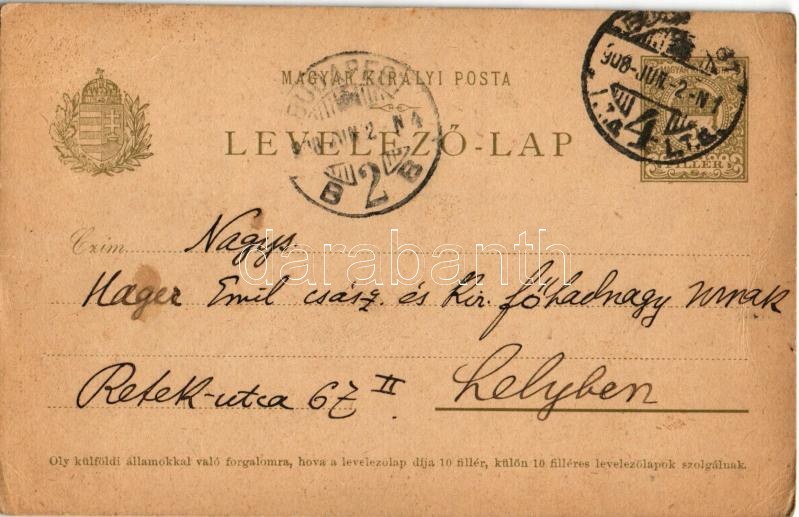 MAGYAR KIRÁLYI POSTA
LEVELEZŐ-LAP
BUDAPEST
B 2 B
908-JUN-2-N1
4
FILLÉR
Czim Nagys.
Hager Emil csász. és Kir. főhadnagy úrnak
Retek-utca 67 II.
Helyben
Oly külföldi államokkal való forgalomra, hova a levelezőlap díja 10 fillér, külön 10 filléres levelezőlapok szolgálnak.
darabanth